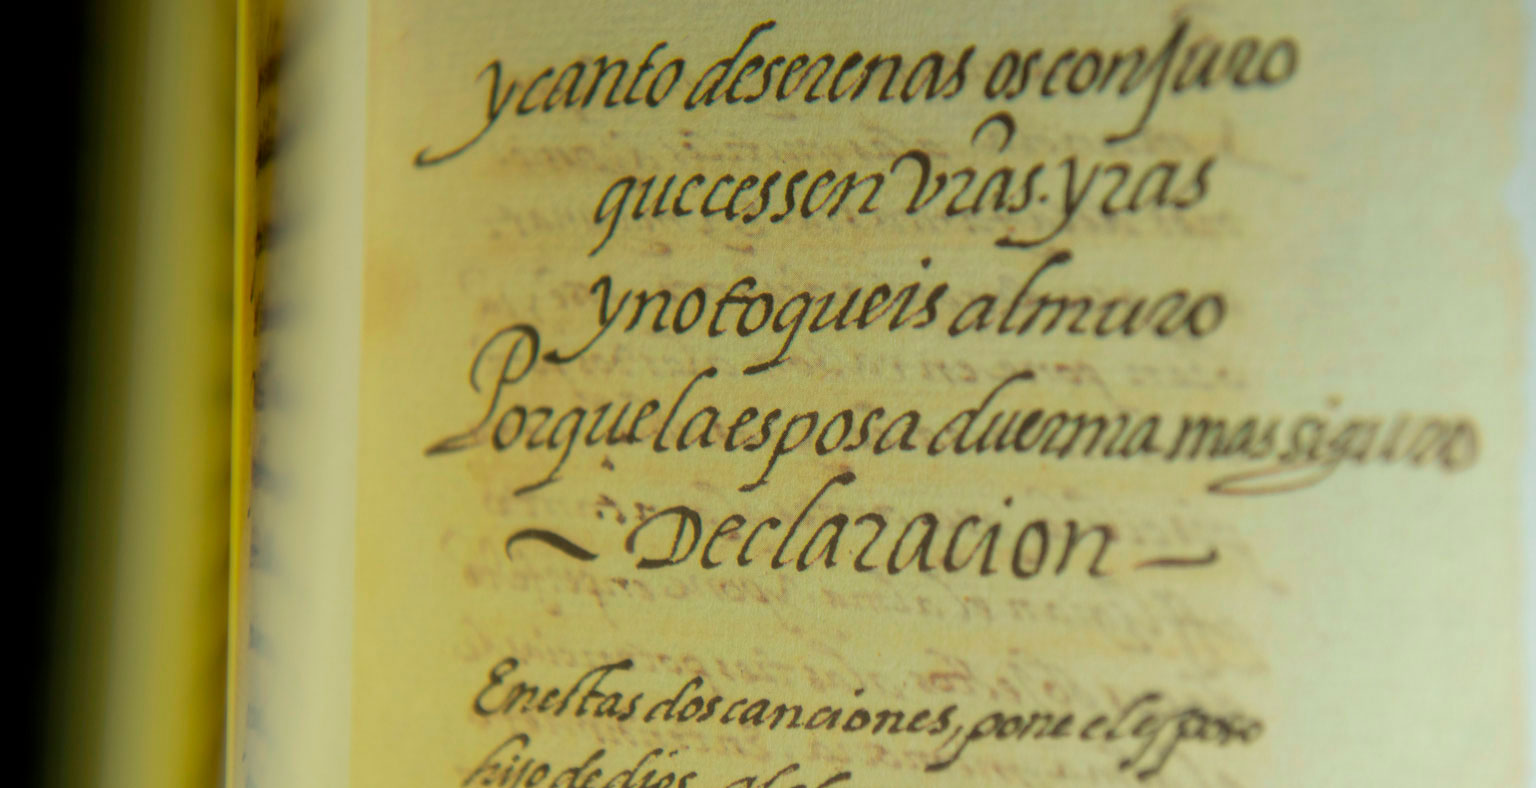 y canto de serenas os conjuro
que cessen vr̃as. yras
y no toqueis al muro
Porque la esposa duerma mas siguro
~ Declaracion ~
En estas dos canciones, pone el esposo
hijo de dios